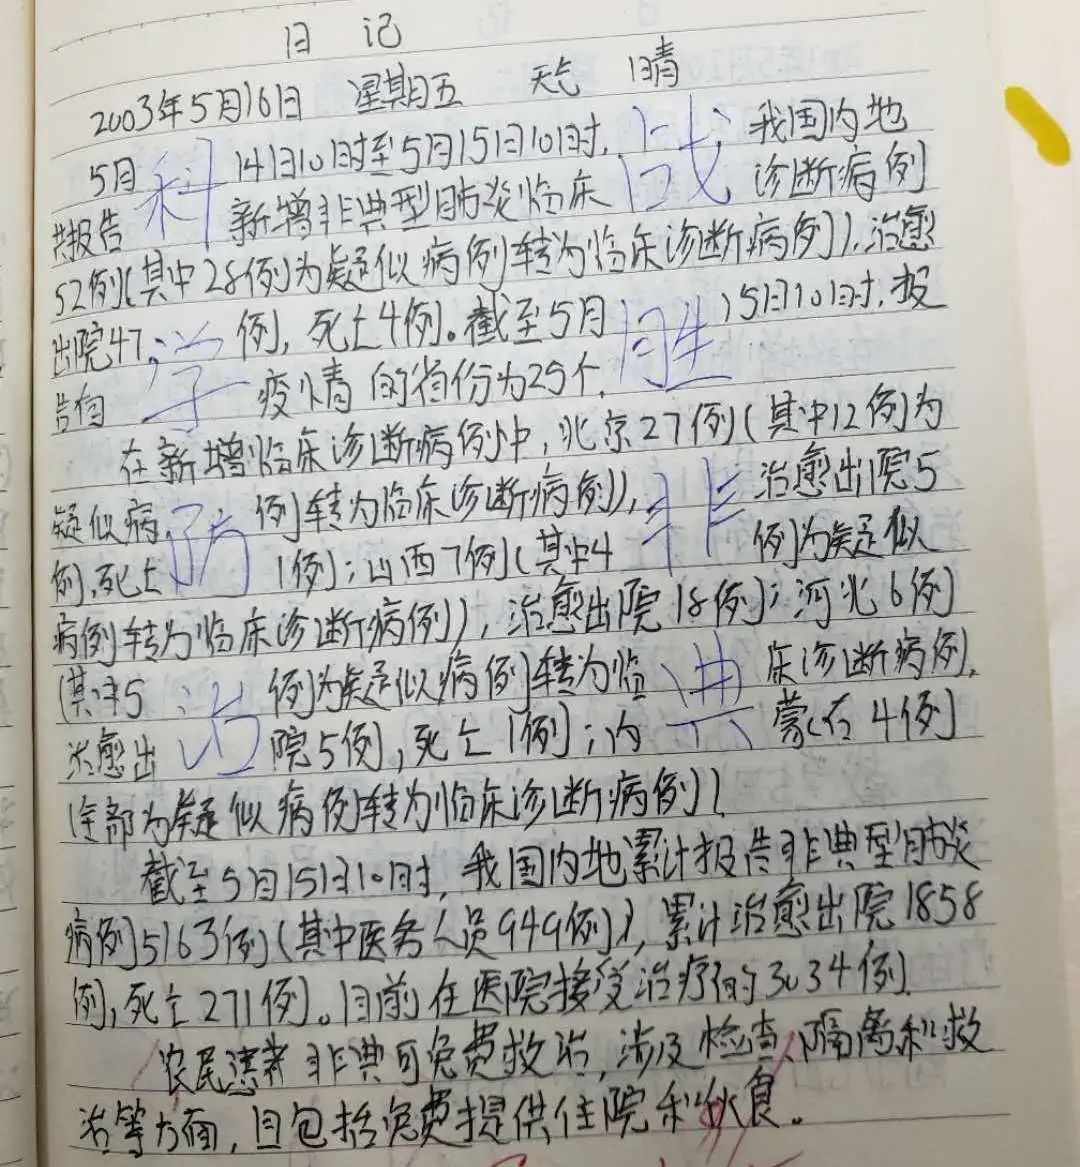 日 记
2003年5月16日 星期五 天气 晴
5月 科 14日10时至5月15日10时, 战 我国内地
共报告 新增非典型肺炎临床 诊断病例
52例(其中28例为疑似病例转为临床诊断病例),治愈
出院47 学 例,死亡4例。截至5月 胜 15日10时,报
告有 疫情的省份为25个.
在新增临床诊断病例中,北京27例(其中12例为
疑似病 防 例转为临床诊断病例), 非 治愈出院5
例,死亡 1例;山西7例(其中4 例为疑似
病例转为临床诊断病例),治愈出院18例;河北6例
(其中5 治 例为疑似病例转为临 典 床诊断病例,
治愈出 院5例,死亡1例;内 蒙古4例
(全部为疑似病例转为临床诊断病例)
截至5月15日10时,我国内地累计报告非典型肺炎
病例5163例(其中医务人员949例),累计治愈出院1858
例,死亡271例。目前在医院接受治疗的3034例.
农民患者非典可免费救治,涉及检查、隔离和救
治等方面,且包括免费提供住院和伙食。